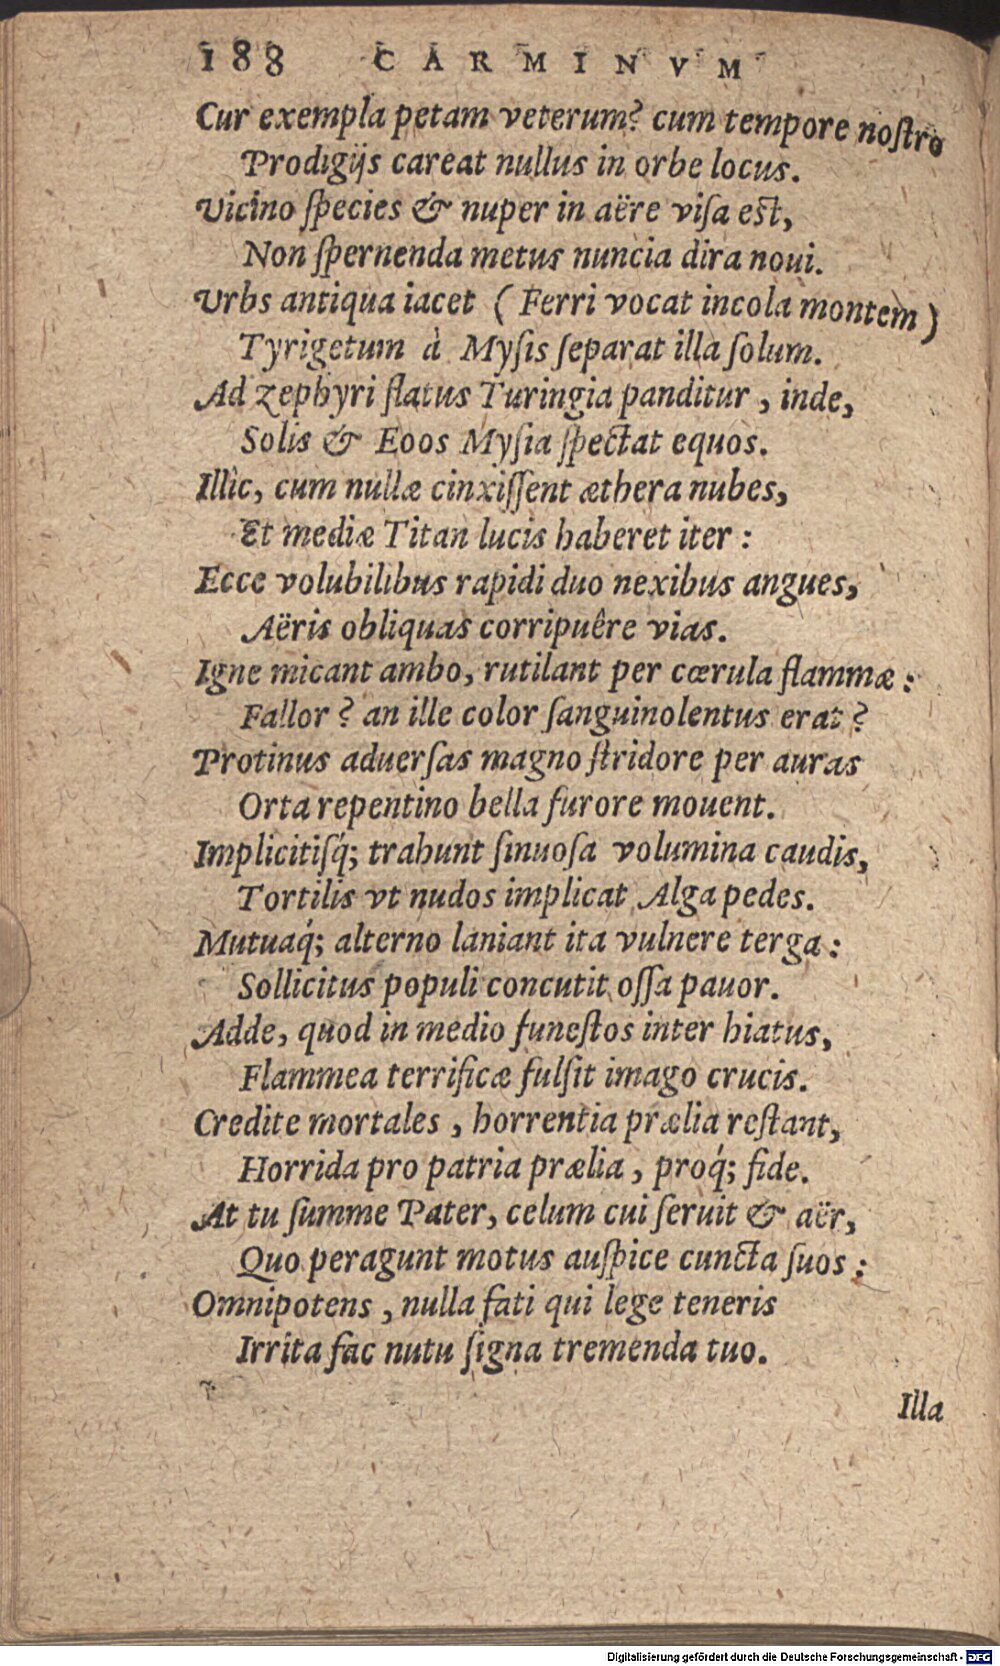 188 CARMINVM
Cur exempla petam veterum? cum tempore nostro
Prodigijs careat nullus in orbe locus.
Vicino species & nuper in aëre visa est,
Non spernenda metus nuncia dira noui.
Vrbs antiqua iacet (Ferri vocat incola montem)
Tyrigetum à Mysis separat illa solum.
Ad zephyri flatus Turingia panditur, inde,
Solis & Eoos Mysia spectat equos.
Illic, cum nullæ cinxissent æthera nubes,
Et mediæ Titan lucis haberet iter:
Ecce volubilibus rapidi duo nexibus angues,
Aëris obliquas corripuêre vias.
Igne micant ambo, rutilant per cœrula flammæ:
Fallor? an ille color sanguinolentus erat?
Protinus aduersas magno stridore per auras
Orta repentino bella furore mouent.
Implicitisq́; trahunt sinuosa volumina caudis,
Tortilis vt nudos implicat Alga pedes.
Mutuaq́; alterno laniant ita vulnere terga:
Sollicitus populi concutit ossa pauor.
Adde, quod in medio funestos inter hiatus,
Flammea terrificæ fulsit imago crucis.
Credite mortales, horrentia prælia restant,
Horrida pro patria prælia, proq́; fide.
At tu summe Pater, celum cui seruit & aër,
Quo peragunt motus auspice cuncta suos:
Omnipotens, nulla fati qui lege teneris
Irrita fac nutu signa tremenda tuo.
Illa
Digitalisierung gefördert durch die Deutsche Forschungsgemeinschaft - DFG